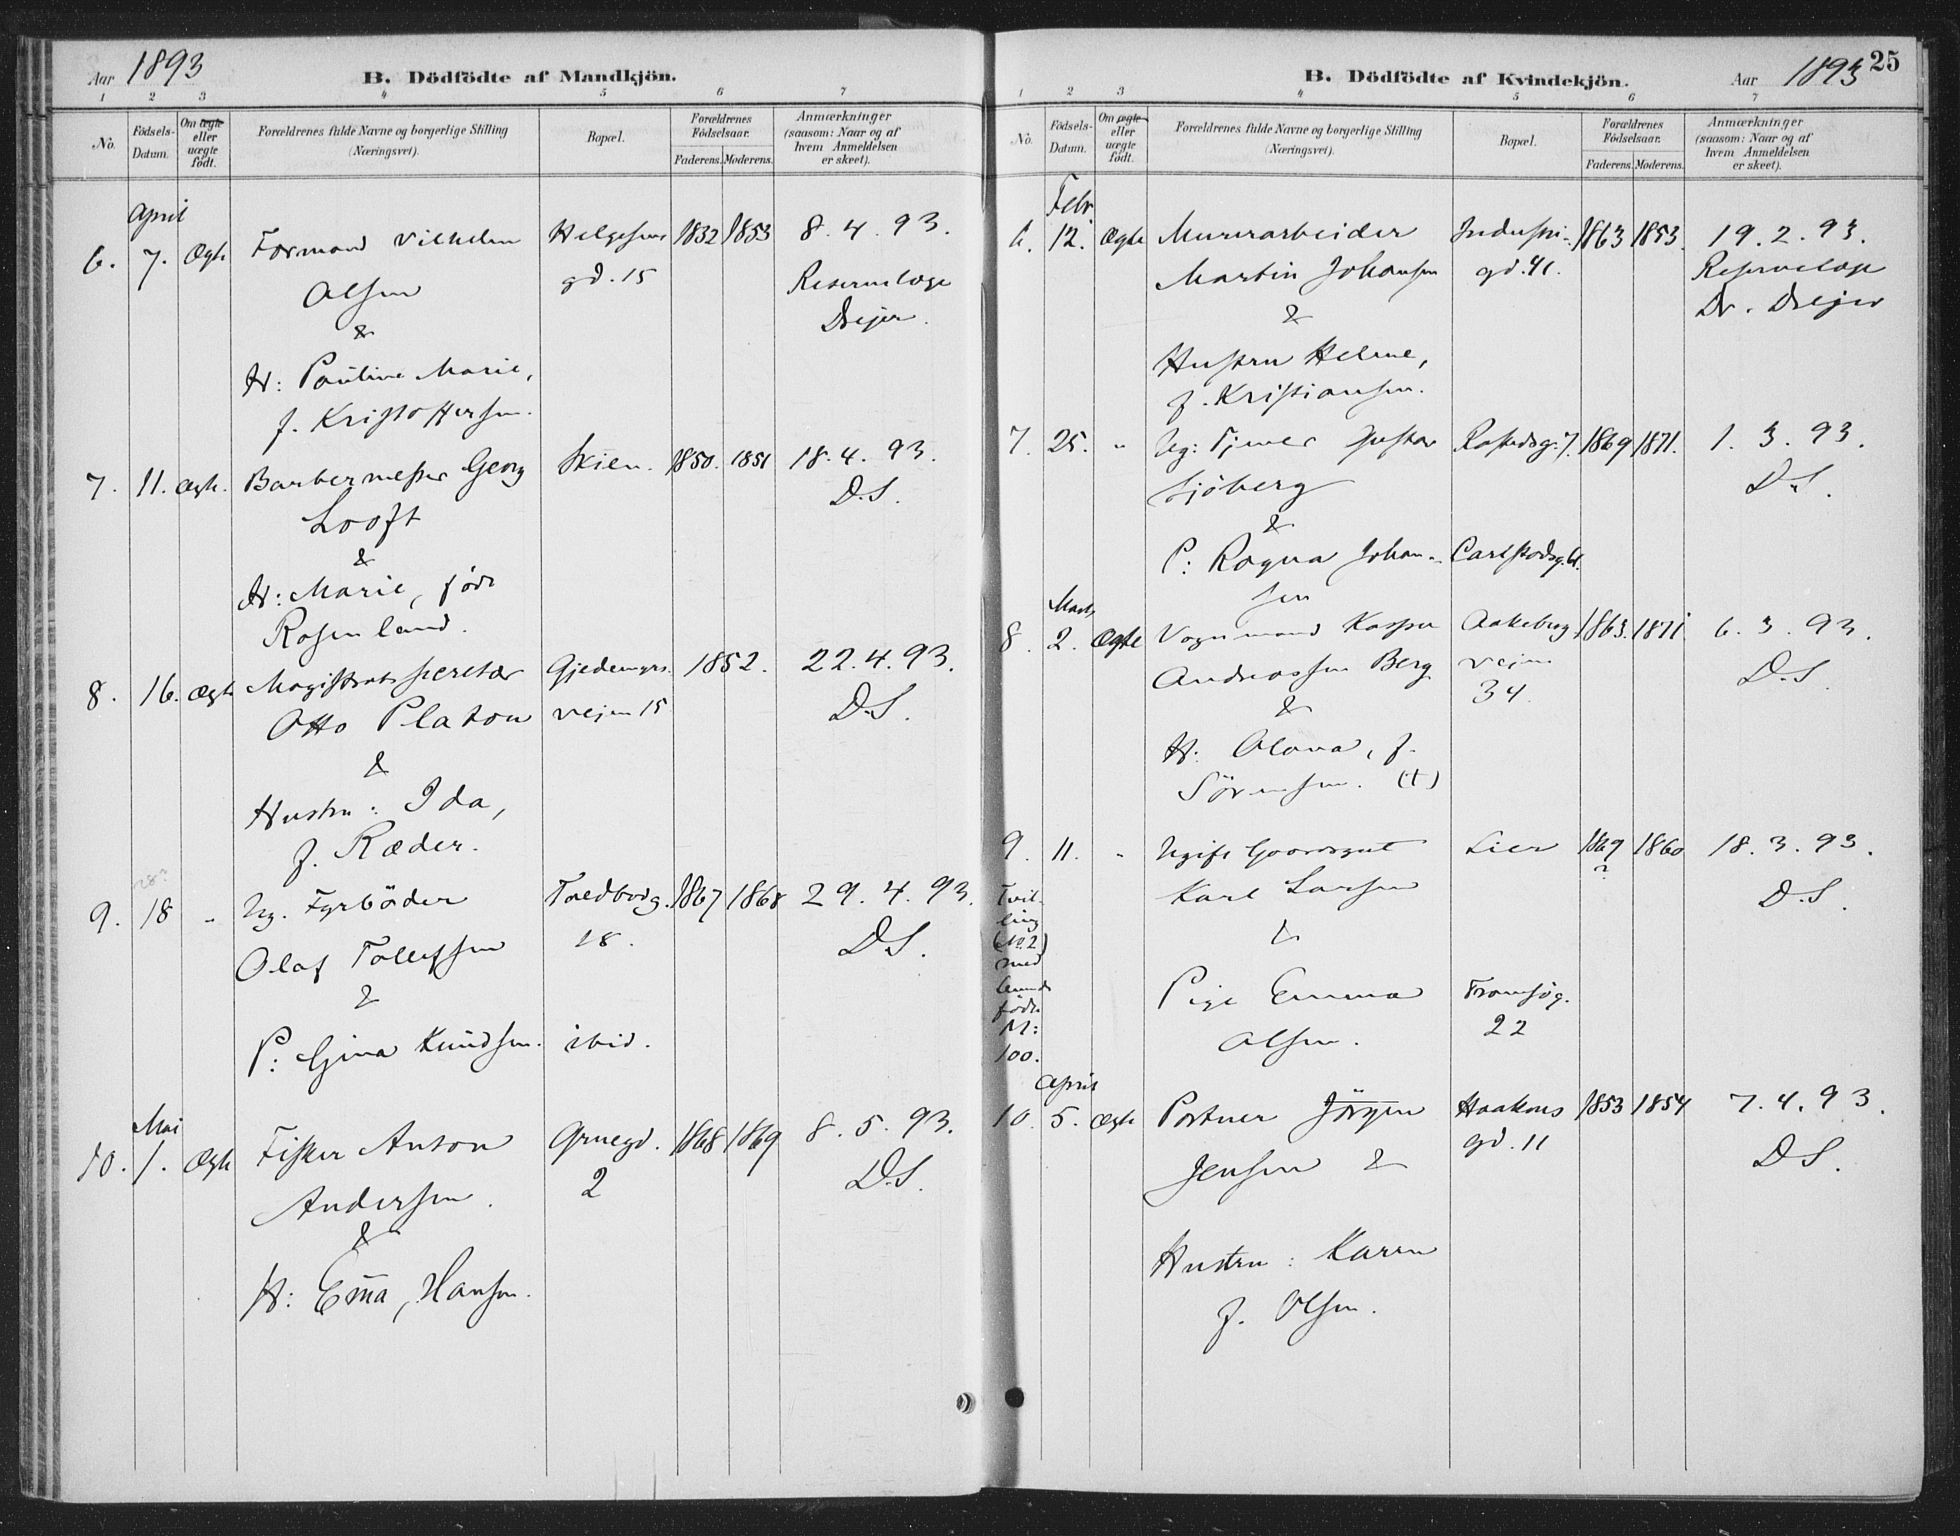 Aar 1893
B. Dödfödte af Mandkjön.
1 2 3 4 5 6 7
No.
Födsels-
Datum.
Om ægte
eller
uægte
födt.
Forældrenes fulde Navne og borgerlige Stilling
(Næringsvei).
Bopæl.
Forældrenes
Födselsaar.
Faderens. Moderens.
Anmærkninger
(saasom: Naar og af
hvem Anmeldelsen
er skeet).
April
6. 7. Ægte Formand Vilhelm Helgesens 1832 1853 8.4.93.
Olsen gd. 15 Reservelæge
& Drejer.
H: Pauline Marie,
f. Kristoffersen.
7. 11. Ægte. Barbermester Georg Skien. 1850. 1851 18.4.93.
Looft D.S.
&
H: Marie, född
Rosenland.
8. 16. Ægte Magistratssecretær Gjedemyrs- 1852. 22.4.93.
Otto Platou vejen 15 D.S.
&
Hustru: Ida,
f. Ræder.
28?
9. 18 " Ug. Fyrböder Toldbodg. 1867 1868 29.4.93.
Olaf Tollefsen 28. D.S.
&
P: Gina Knudsen. ibid.
Mai
10. 1. Ægte Fisker Anton Gruegd. 1868 1869 8.5.93.
Andersen. 2 D.S.
&
H: Em̄a, Hansen.
25
B. Dödfödte af Kvindekjön.
Aar 1893
1 2 3 4 5 6 7
No.
Födsels-
Datum.
Om ægte
eller
uægte
födt.
Forældrenes fulde Navne og borgerlige Stilling
(Næringsvei).
Bopæl.
Forældrenes
Födselsaar.
Faderens. Moderens.
Anmærkninger
(saasom: Naar og af
hvem Anmeldelsen
er skeet).
Febr.
6. 12. Ægte Murerarbeider Industri- 1863 1853. 19.2.93.
Martin Johansen gd. 41. Reservelæge
& Dr. Drejer
Hustru Helene,
f. Kristiansen.
7. 25. " Ug: Tjener Gustav 7. 1869 1871. 1.3.93.
Sjöberg D.S.
&
P: Ragna Johan- Carlstadsg.
sen
Marts
8. 2. Ægte Vognmand Kasper Aakeberg 1863. 1871 6.3.93.
Andreassen Berg vejen D.S.
& 34.
H. Olava, f.
Sörensen. (†)
9. 11. " Ugift Gaardsgut Lier 1869 1860 18.3.93.
?
Karl Larsen D.S.
&
Pige Emma Tromsög.
Olsen. 22
Tvil-
ling
(No. 2)
med
levende
födte
M:
100.
April
10. 5. Ægte Portner Jörgen Haakons 1853 1854 7.4.93.
Jensen & gd. 11 D.S.
Hustru: Karen
f. Olsen.